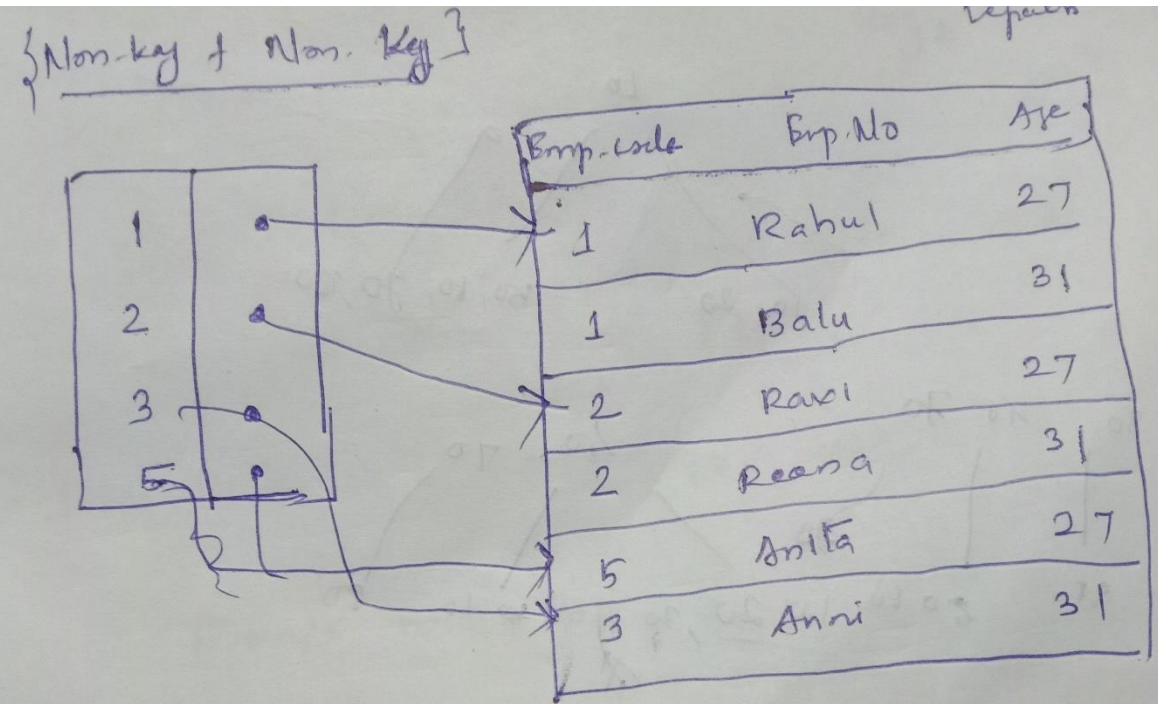 {Non-key + Non. Key}
Emp-code Emp.No Age
1 1 Rahul 27
2 1 Balu 31
3 2 Ravi 27
5 2 Reena 31
5 Anita 27
3 Anni 31